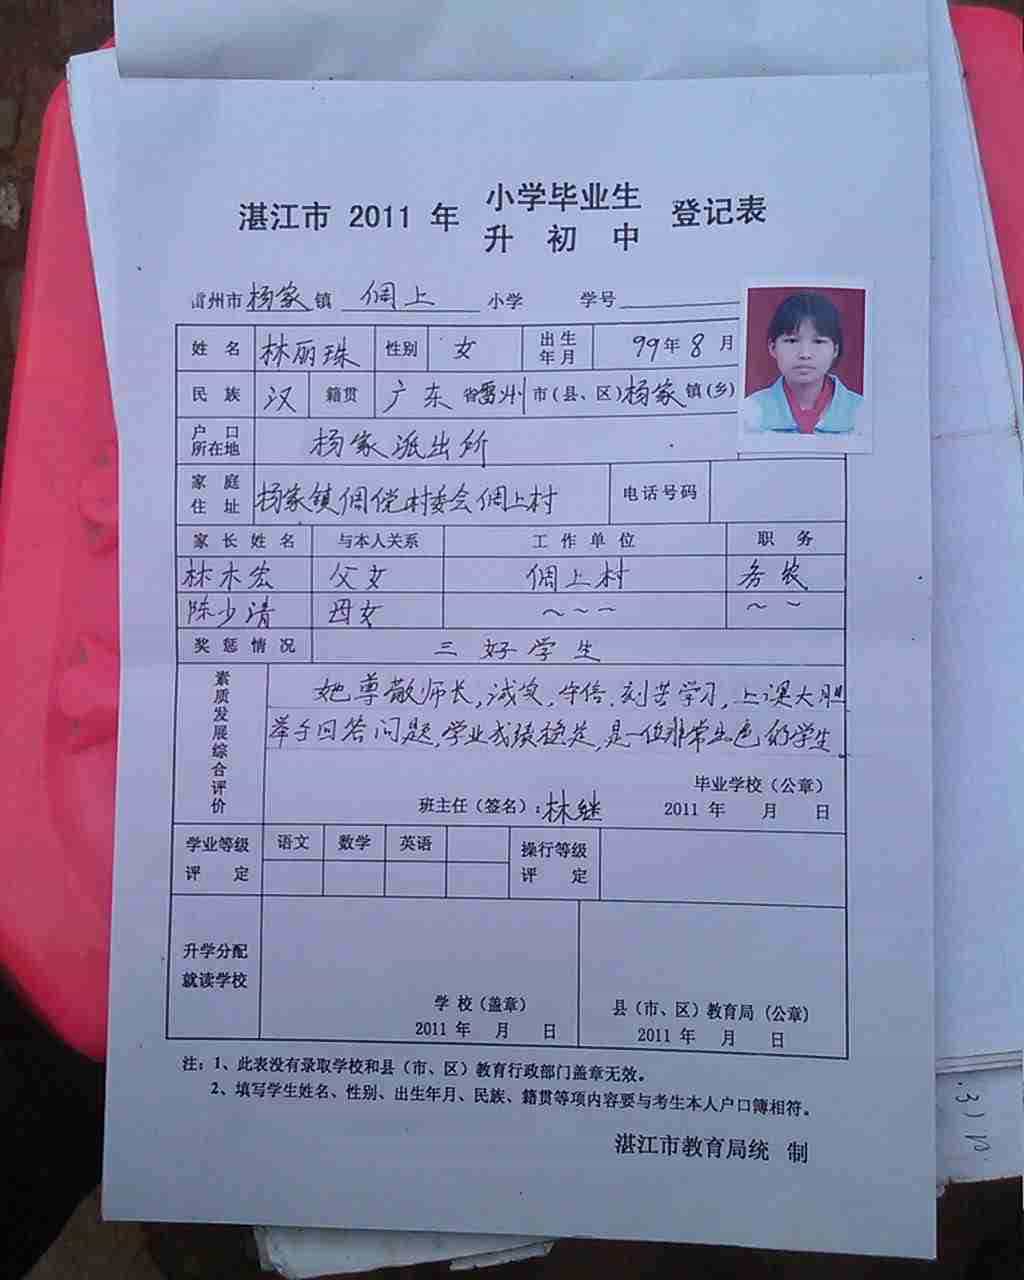 湛江市 2011 年 小学毕业生 登记表
升 初 中
雷州市 杨家 镇 倜上 小学 学号
姓 名 林丽珠 性别 女 出生年月 99年8月
民 族 汉 籍贯 广东 省 雷州 市(县、区) 杨家 镇(乡)
户 口 所在地 杨家派出所
家 庭 住 址 杨家镇倜傥村委会倜上村 电话号码
家 长 姓 名 与本人关系 工 作 单 位 职 务
林木宏 父女 倜上村 务农
陈少清 母女 ~ ~ ~ ~ ~
奖 惩 情 况 三好学生
素质发展综合评价
她尊敬师长,诚实,守信,刻苦学习,上课大胆
举手回答问题,学业成绩稳定,是一位非常出色的学生。
毕业学校(公章)
班主任(签名):林继 2011 年 月 日
学业等级 语文 数学 英语 操行等级
评 定 评 定
升学分配
就读学校
学 校(盖章) 县(市、区)教育局(公章)
2011 年 月 日 2011 年 月 日
注: 1、此表没有录取学校和县(市、区)教育行政部门盖章无效。
2、填写学生姓名、性别、出生年月、民族、籍贯等项内容要与考生本人户口簿相符。
湛江市教育局统 制